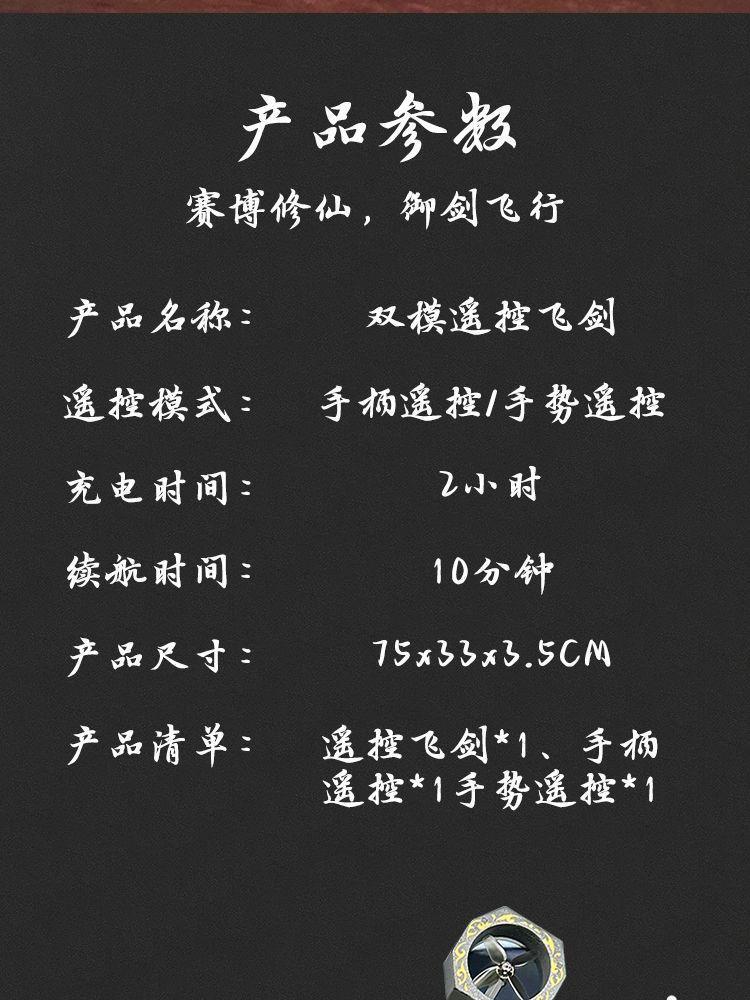 产品参数
赛博修仙，御剑飞行
产品名称： 双模遥控飞剑
遥控模式： 手柄遥控/手势遥控
充电时间： 2小时
续航时间： 10分钟
产品尺寸： 75x33x3.5CM
产品清单： 遥控飞剑*1、手柄
遥控*1手势遥控*1